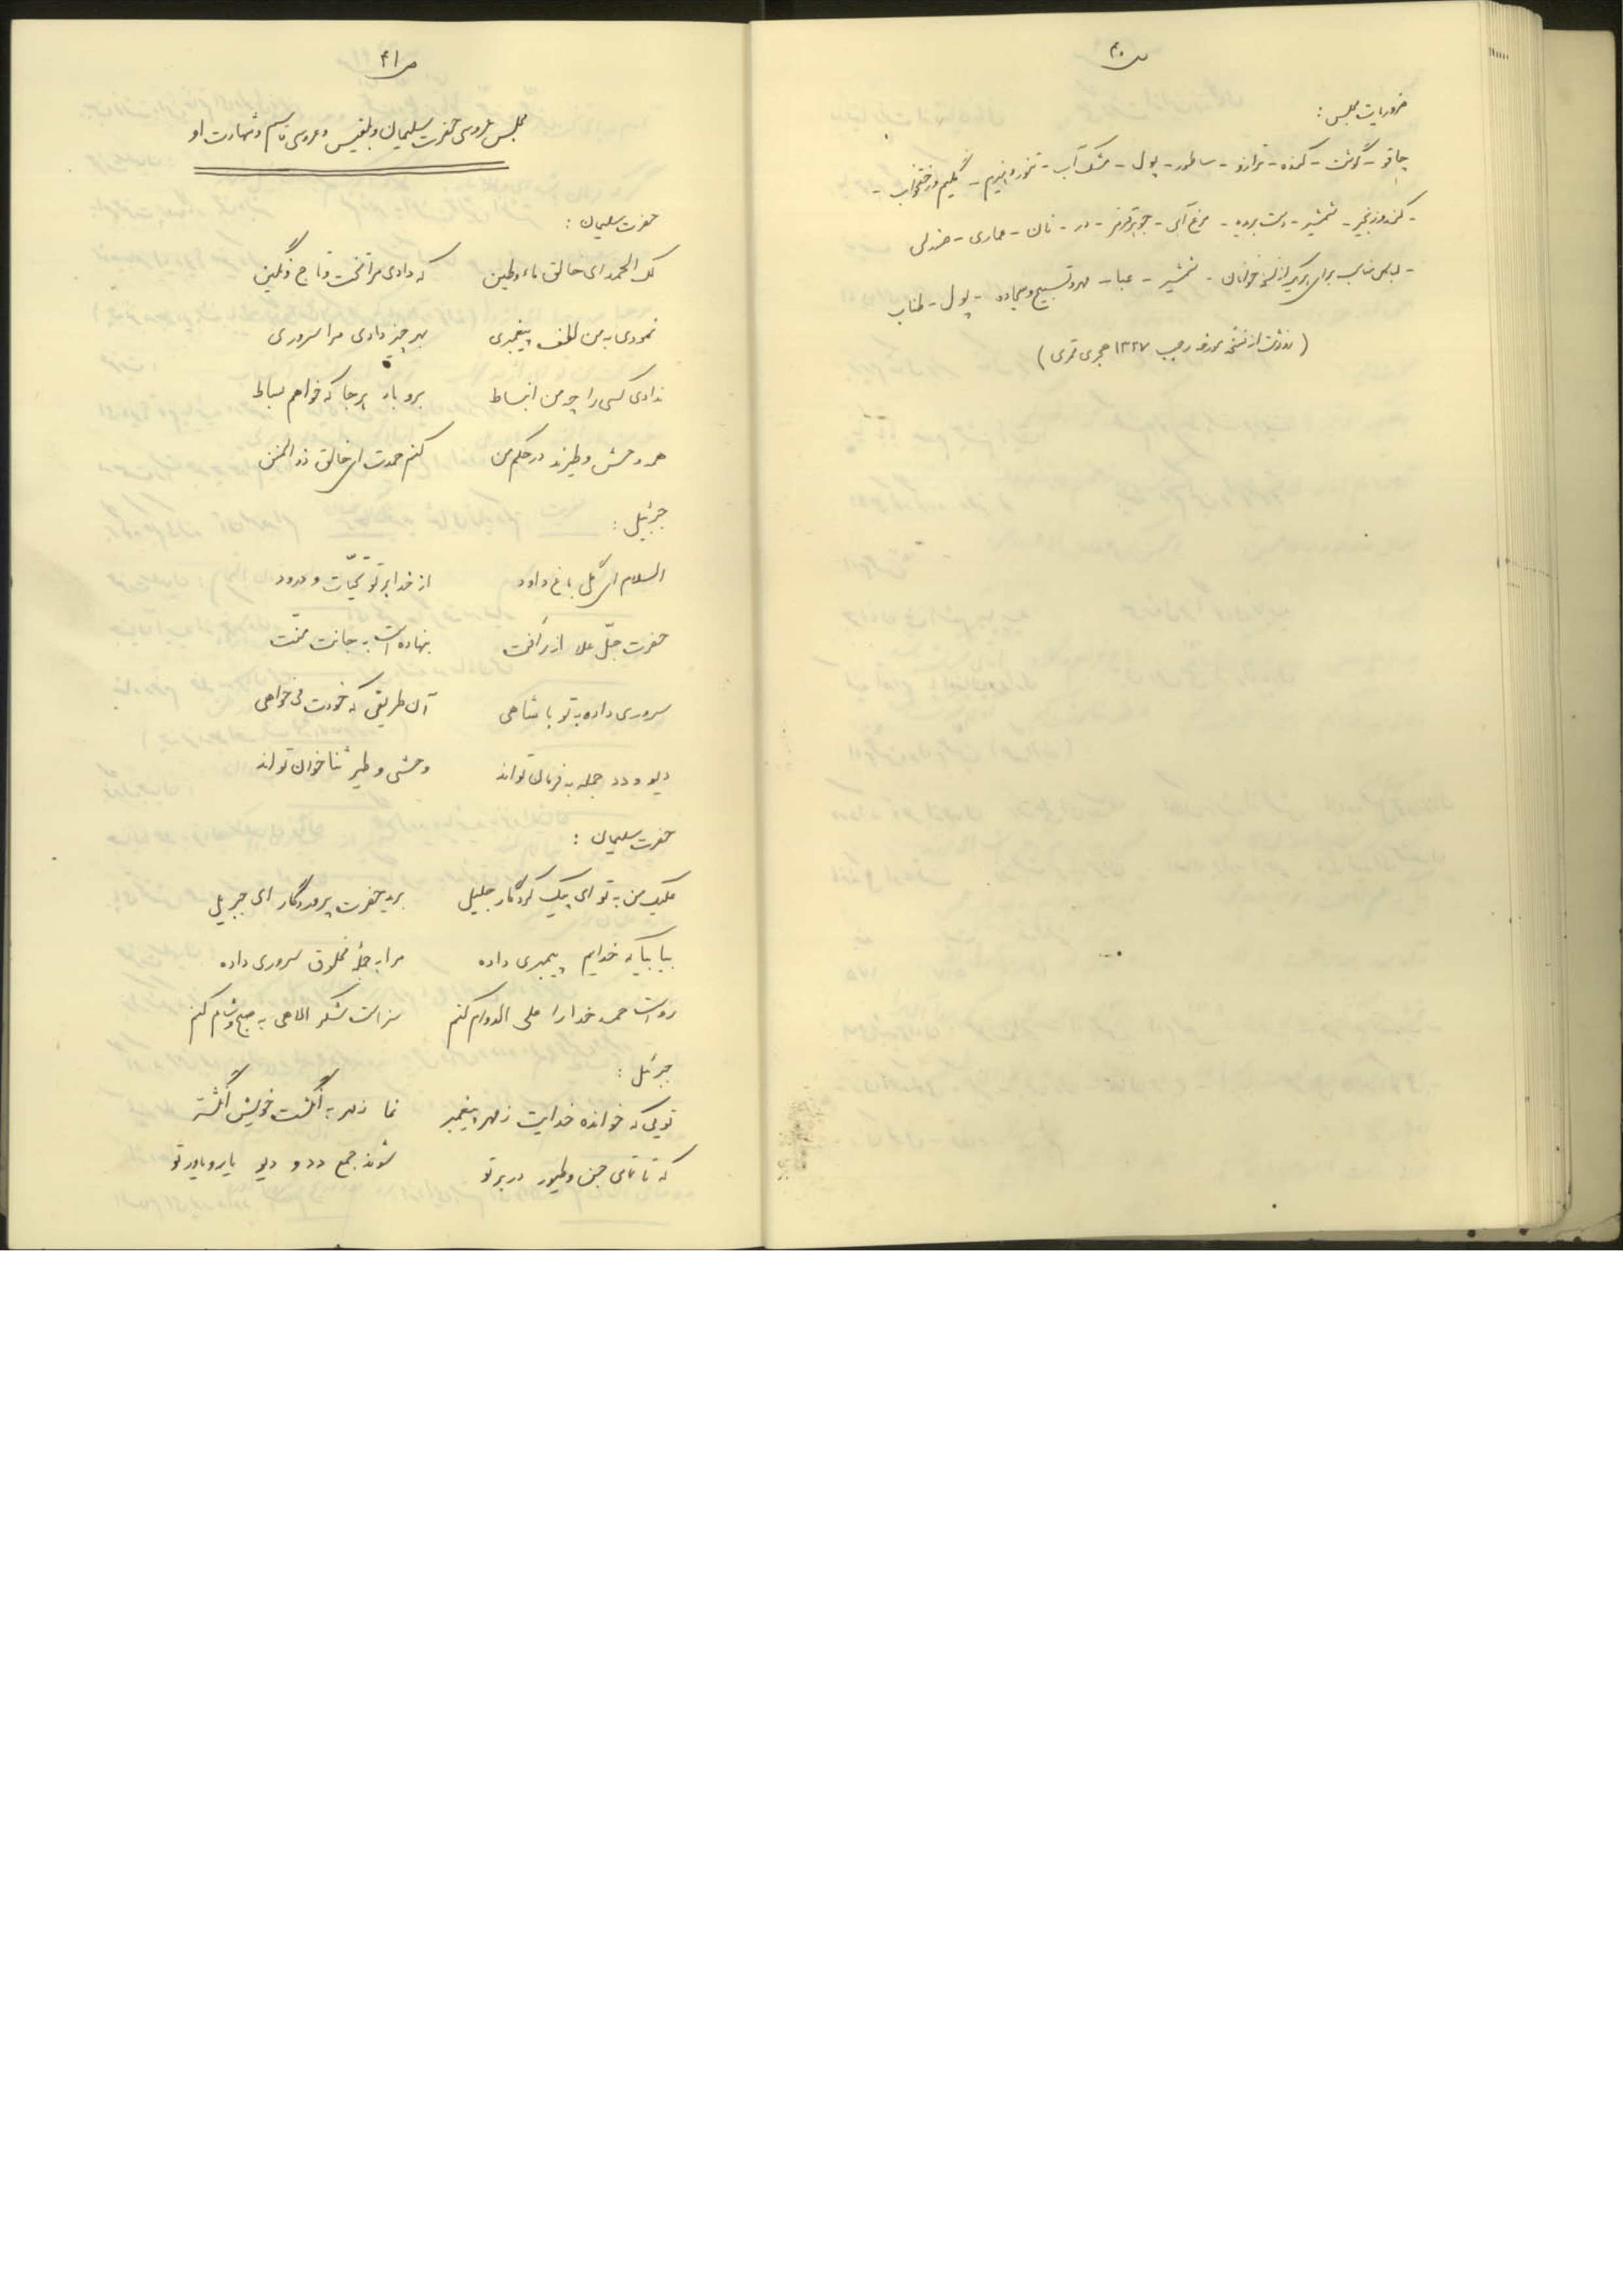 ص ۴۰
ضروریات مجلس :
چاقو - گوشت - کنده - ترازو - ساطور - پول - مشک آب - تنور و هیزم - گلیم و رختخواب -
- کمند و زنجیر - شمشیر - دست بریده - مرغ آبی - چوبتر قرمز - در - نان - عماری - صندلی
- لباس مناسب برای هر یک از نسخه خوانان - شمشیر - عبا - مهر و تسبیح و سجاده - پول - طناب
( رونوشت از نسخه مورخه رجب ۱۳۲۷ هجری قمری )
ص ۴۱
مجلس عروسی حضرت سلیمان و بلقیس و عروسی قاسم و شهادت او
حضرت سلیمان :
لک الحمد ای خالق ماء و طین که دادی مرا تخت و تاج و نگین
نمودی به من لطف پیغمبری بهر چیز دادی مرا سروری
ندادی کسی را چو من انبساط برو باد هر جا که خواهم بساط
همه وحش و طیرند در حکم من کنم حمدت ای خالق ذوالمنن
جبرئیل :
السلام ای گل باغ داود از خدا بر تو تحیّات و درود
حضرت جلّ علا از رأفت بنهاده است به جانت منّت
سروری داده به تو با شاهی آن طریقی که خودت می خواهی
دیو و دد جمله به فرمان تواند وحشی و طیر ثنا خوان تواند
حضرت سلیمان :
علیک من به تو ای پیک کردگار جلیل برید حضرت پروردگار ای جبریل
بیا بیا که خدایم پیمبری داده مرا به جملهٔ مخلوق سروری داده
رواست حمد خدا را علی الدوام کنم سزاست شکر الاهی به صبح و شام کنم
جبرئیل :
تویی که خوانده خدایت ز مهر پیغمبر نما ز مهر به انگشت خویش انگشتر
که تا تمامی جن و طیور در بر تو شوند جمع دد و دیو یار و یاور تو